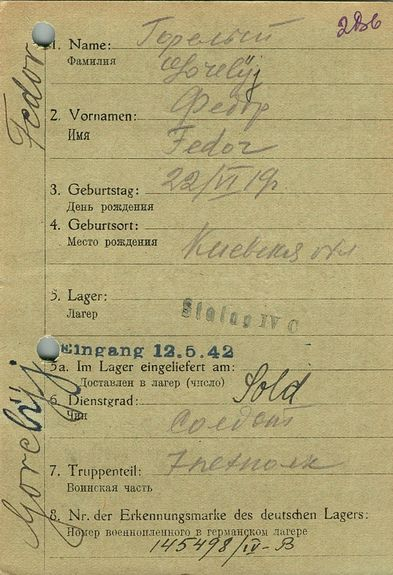 2Вб
1. Name: Горелый
Фамилия Gorelÿj
2. Vornamen: Федор
Имя Fedor
3. Geburtstag: 22/VI 19г.
День рождения
4. Geburtsort:
Место рождения Киевская обл
5. Lager:
Лагер Stalag IV C
Eingang 12.5.42
5a. Im Lager eingeliefert am:
Доставлен в лагер (число)
6. Dienstgrad: Sold
Чин солдат
7. Truppenteil: 7
Воинская часть
8. Nr. der Erkennungsmarke des deutschen Lagers:
Номер военнопленного в германском лагере
145498/IV-B
Gorelÿj Fedor